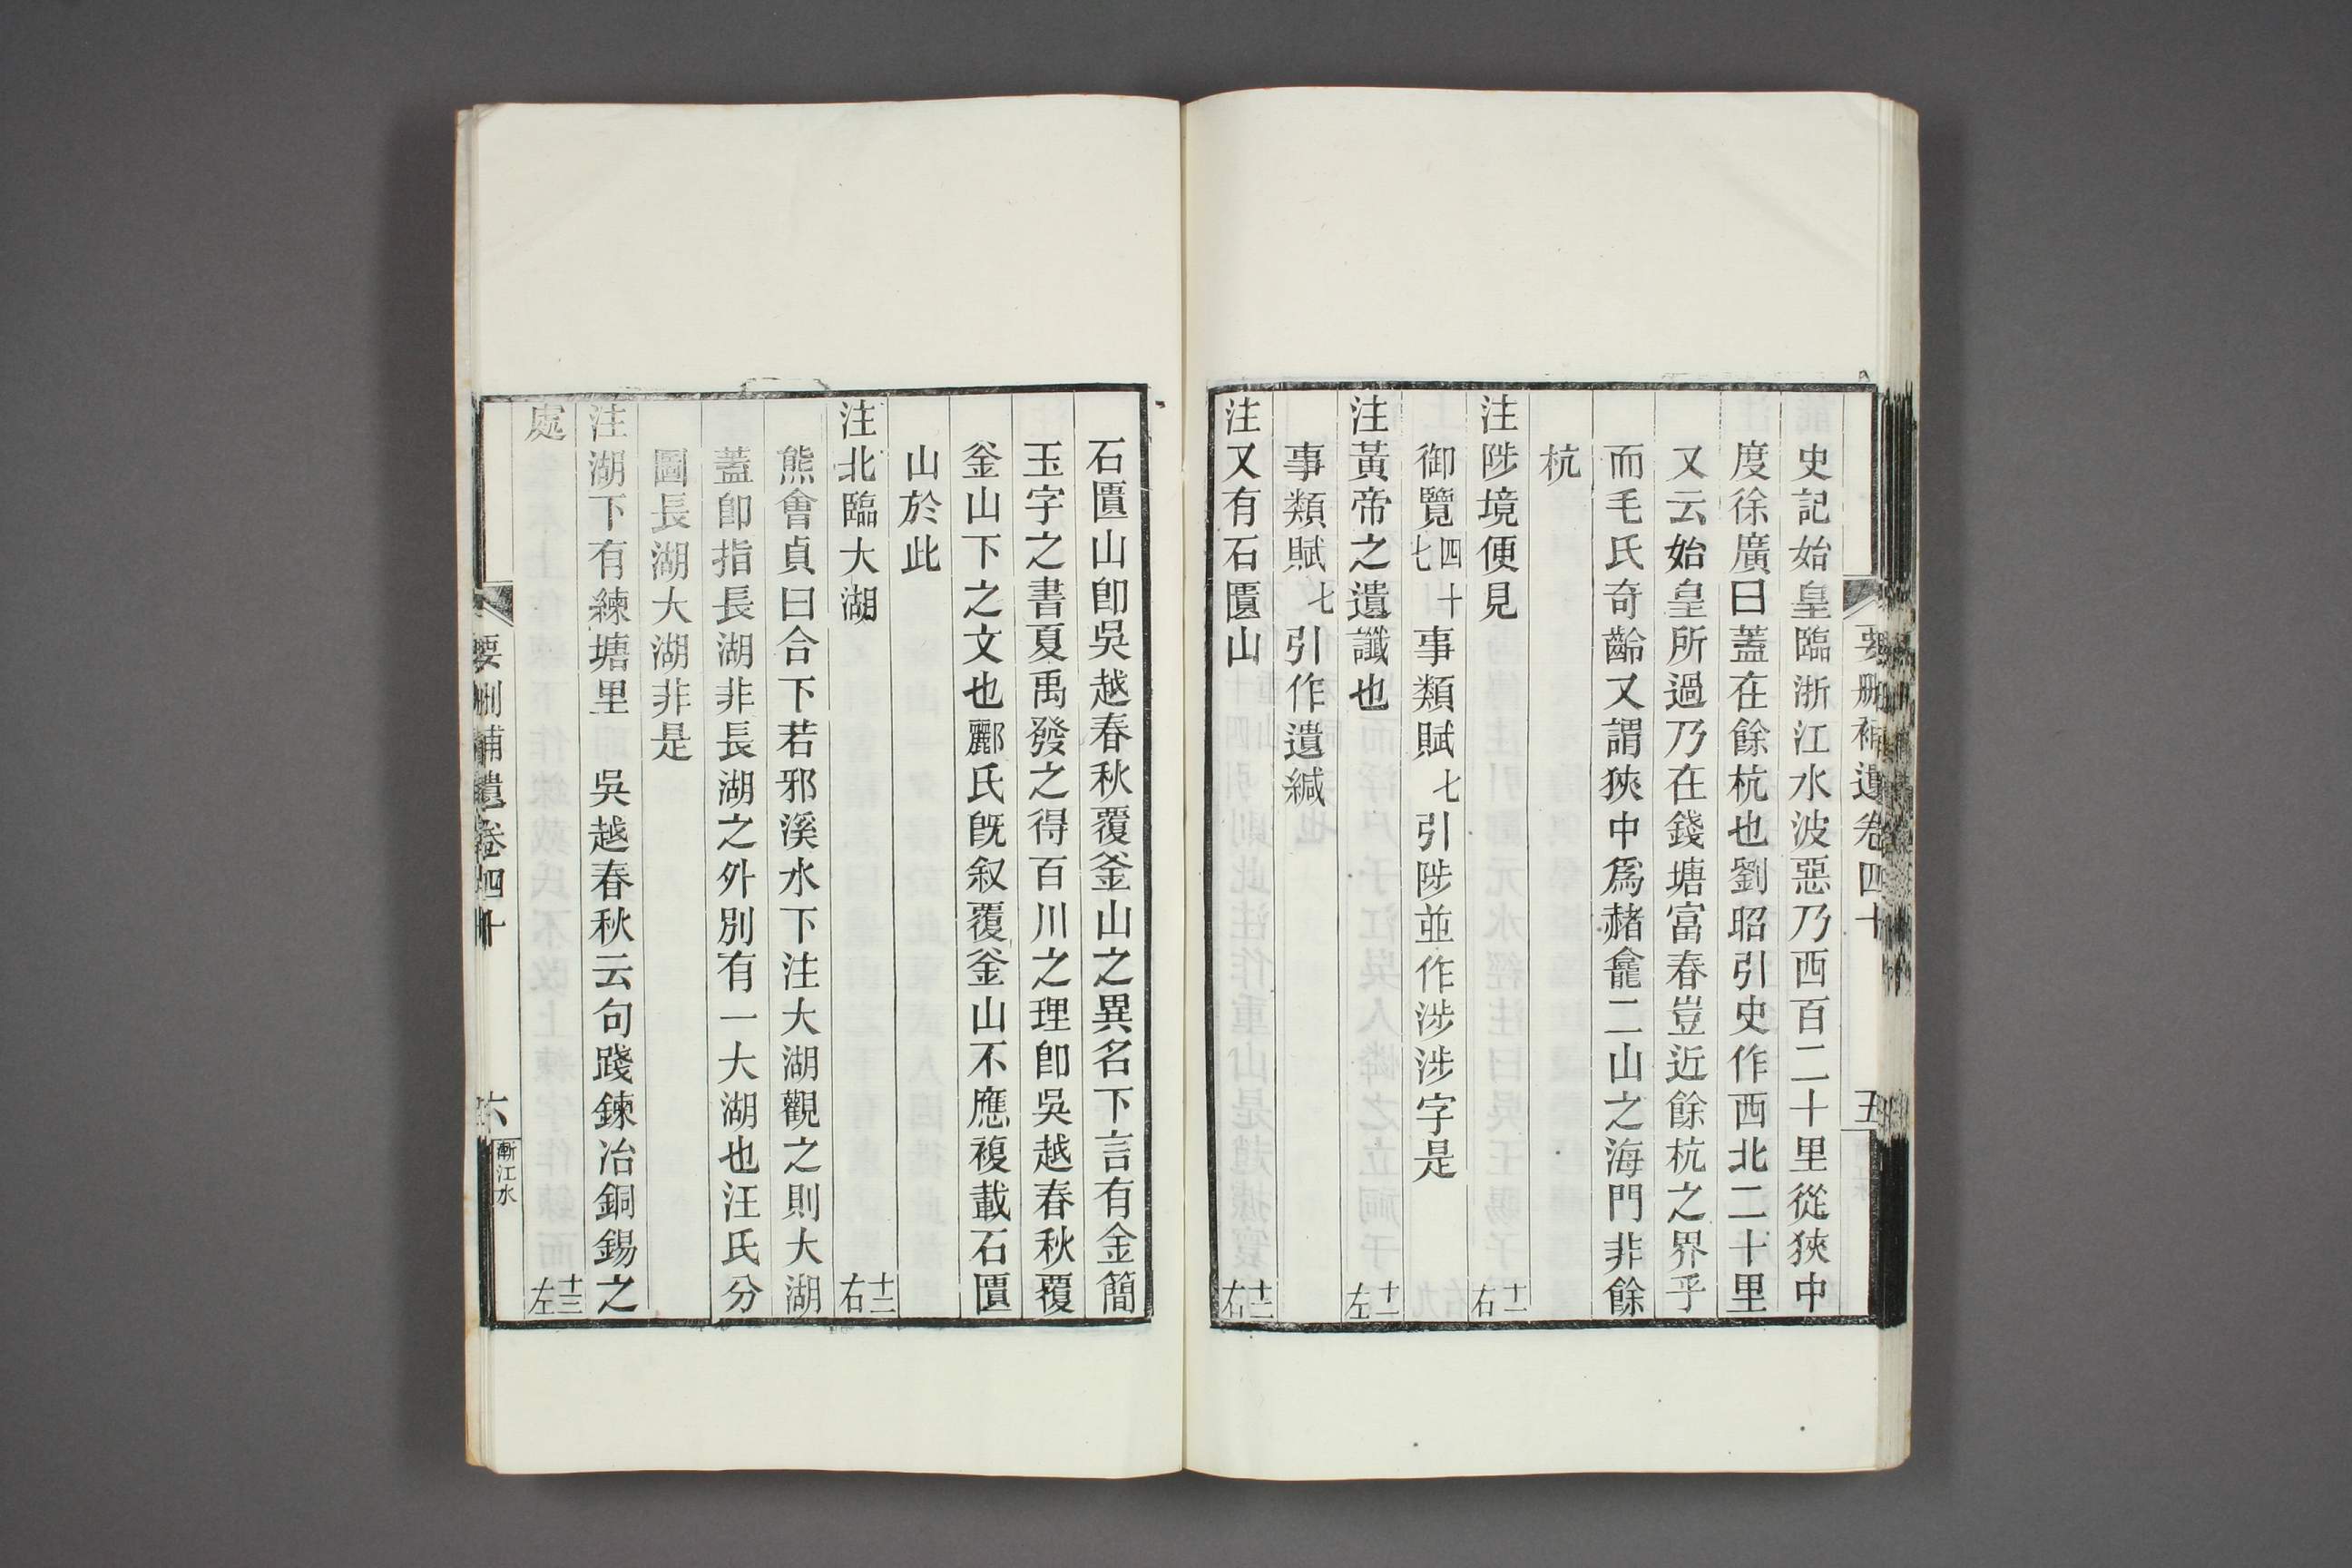 要刪補遺卷四十
五
史記始皇臨浙江水波惡乃西百二十里從狹中
度徐廣曰蓋在餘杭也劉昭引史作西北二十里
又云始皇所過乃在錢塘富春豈近餘杭之界乎
而毛氏奇齡又謂狹中爲赭龕二山之海門非餘
杭
注陟境便見 十一右
御覽四十七事類賦七引陟並作涉涉字是
注黃帝之遺讖也 十一左
事類賦七引作遺緘
注又有石匱山 十二右
石匱山卽吳越春秋覆釜山之異名下言有金簡
玉字之書夏禹發之得百川之理卽吳越春秋覆
釜山下之文也酈氏旣叙覆釜山不應複載石匱
山於此
注北臨大湖 十二右
熊會貞曰合下若邪溪水下注大湖觀之則大湖
蓋卽指長湖非長湖之外別有一大湖也汪氏分
圖長湖大湖非是
注湖下有練塘里 吳越春秋云句踐鍊冶銅錫之
處 十三左
要刪補遺卷四十
六
漸江水